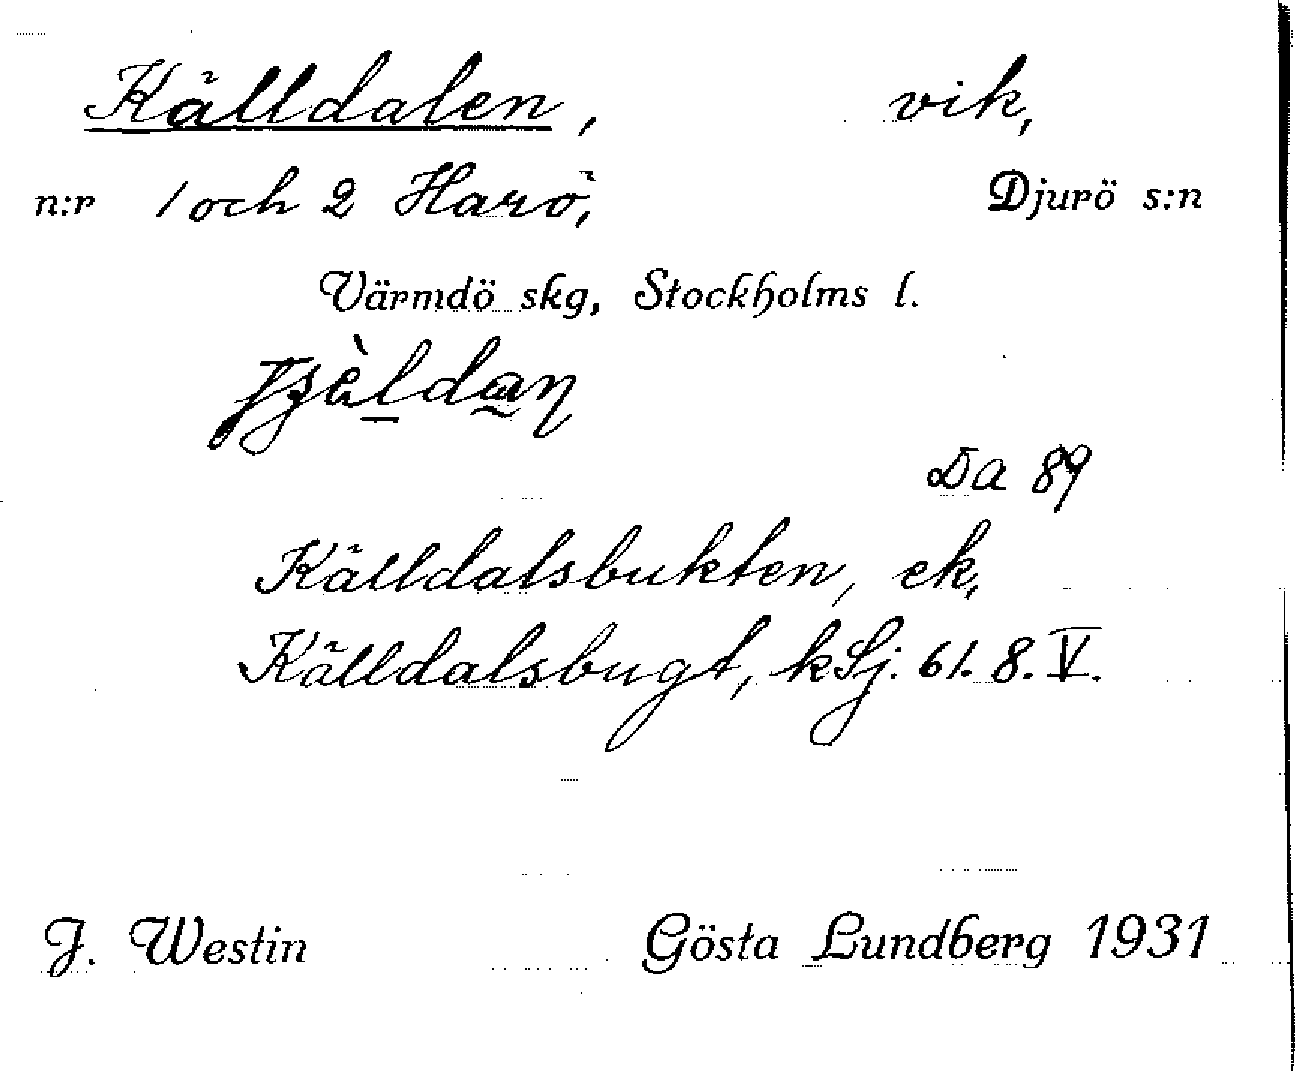 Källdalen, vik,
n:r 1 och 2 Harö, Djurö s:n
Värmdö skg, Stockholms l.
Da 89
Källdalsbukten, ek,
Källdalsbugt, kSj. 61. 8. V.
J. Westin Gösta Lundberg 1931